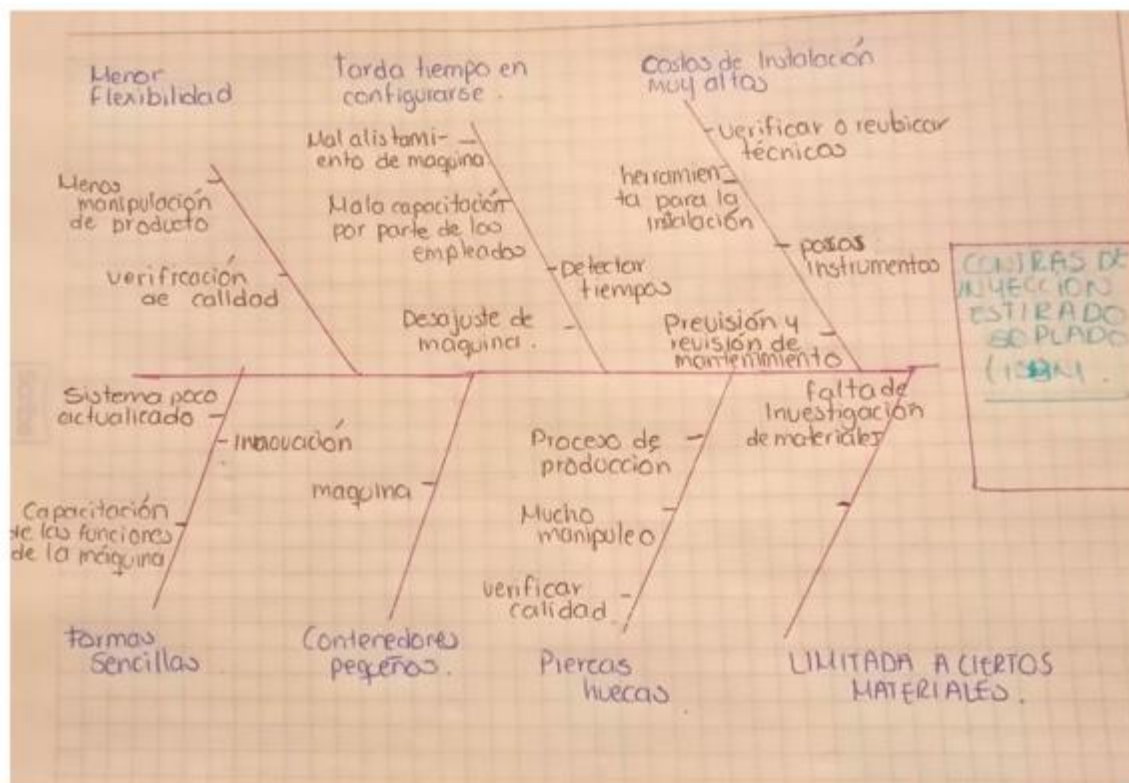 Menor
Flexibilidad
Menos
manipulación
de producto
verificación
de calidad
Tarda tiempo en
configurarse.
Mal alistami-
ento de maquina
Mala capacitación
por parte de los
empleados
Detectar
tiempos
Desajuste de
maquina.
Costos de Instalación
muy altos
verificar o reubicar
técnicos
herramien
ta para la
instalación
instrumentos
Previsión y
revisión de
mantenimiento
CONTRAS DE
INYECCION
ESTIRADO
SOPLADO
Sistema poco
actualizado
Innovación
Capacitación
de las funciones
de la máquina
Formas
Sencillas
maquina
Contenedores
pequeños.
Proceso de
produccion
Mucho
manipuleo
verificar
calidad
Piercas
huecas
falta de
Investigación
de materiales
LIMITADA A CIERTOS
MATERIALES.